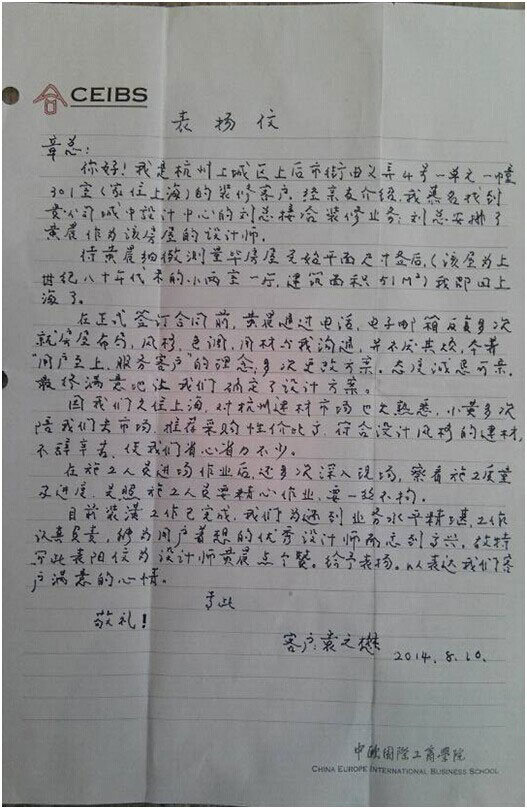 CEIBS
表扬信
章总:
你好!我是杭州上城区上后市街由义弄4号一单元一幢
301室(家住上海)的装修客户.经亲友介绍,我慕名找到
贵公司城中设计中心的刘总接洽装修业务,刘总安排了
黄晨作为该房屋的设计师.
待黄晨细微测量毕房屋原始平面尺寸签后,(该屋为上
世纪八十年代末的小两室一厅,建筑面积51M²)我即回上
海了.
在正式签订合同前,黄晨通过电话,电子邮箱反复多次
就房屋布局,风格,色调,用材与我沟通,并不厌其烦,本着
"用户至上,服务客户"的理念,多次更改方案.态度诚恳可亲.
最终满意地让我们确定了设计方案.
因我们久住上海,对杭州建材市场也欠熟悉,小黄多次
陪我们去市场,推荐采购性价比高,符合设计风格的建材,
不辞辛苦,使我们省心省力不少.
在施工人员进场作业后,还多次深入现场,察看施工质量
及进度,关照施工人员要精心作业,要一丝不拘.
目前装潢工作已完成,我们为遇到业务水平精湛,工作
认真负责,能为用户着想的优秀设计师而感到高兴,故特
写此表阳信为设计师黄晨点个赞.给予表扬.以表达我们客
户满意的心情.
专此
敬礼!
客户:袁之懋
2014.8.10.
中欧国际工商学院
CHINA EUROPE INTERNATIONAL BUSINESS SCHOOL